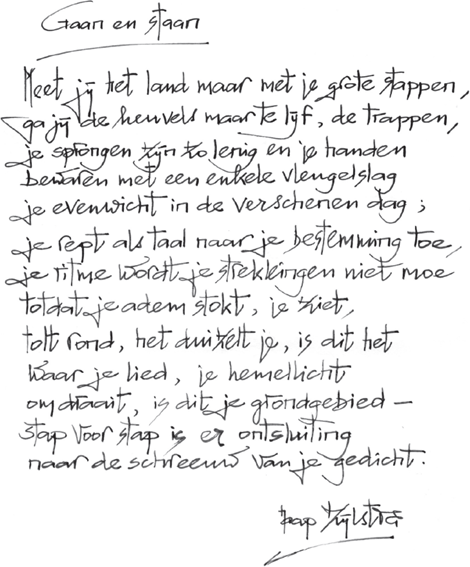 Gaan en staan
Meet jij het land maar met je grote stappen,
ga jij de heuvels maar te lijf, de trappen,
je sprongen zijn zo lenig en je handen
bewaren met een enkele vleugelslag
je evenwicht in de verschenen dag;
je rept als taal naar je bestemming toe,
je ritme wordt je strekkingen niet moe
totdat je adem stokt, je ziet,
tolt rond, het duizelt je, is dit het
waar je lied, je hemellicht
omdraait, is dit je grondgebied –
stap voor stap is er ontsluiting
naar de schreeuw van je gedicht.
Jaap Zijlstra